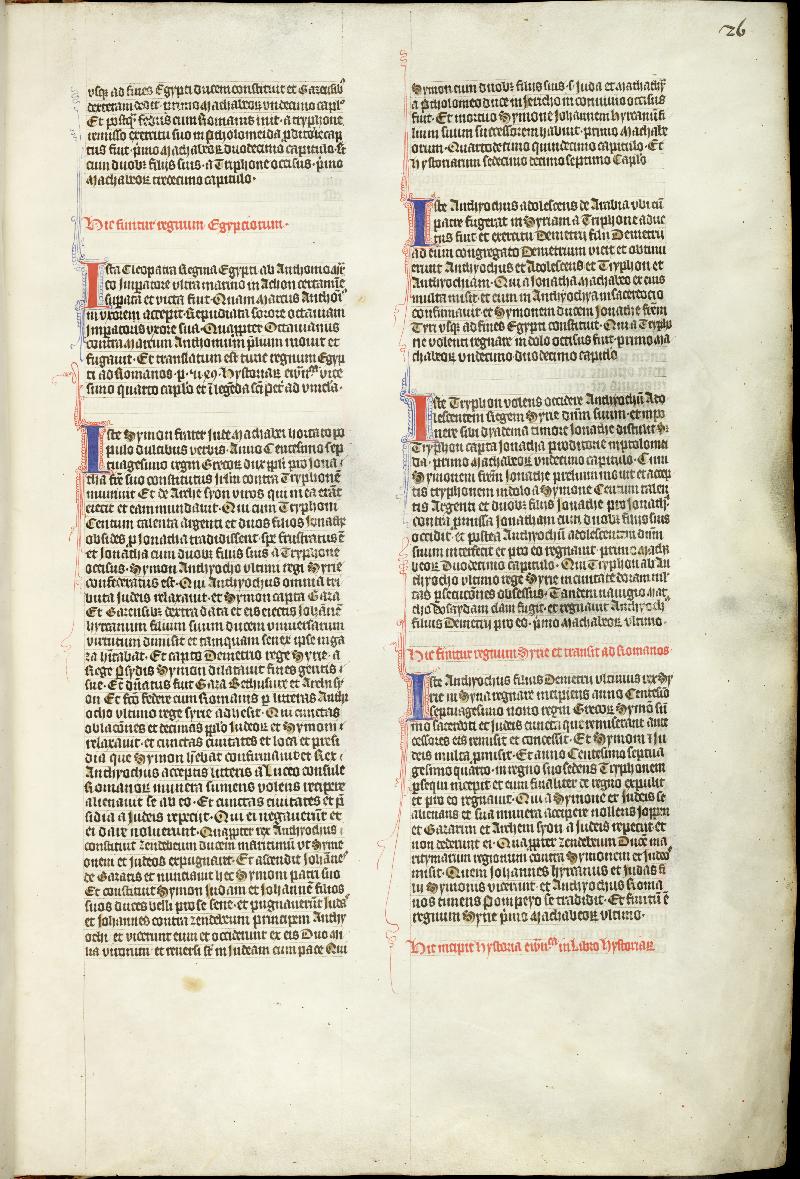 26
usq; ad fines Egypti ducem constituit et Gazensib;
dexteram dedit · primo Machabeoꝝ undecimo caplo
Et postq̃ fedus cum Romanis iniit · a tryphone
remisso exercitu suo in ptholomeida
tus fuit · p̃mo Machabeoꝝ duodecimo capitulo · et
cum duobꝰ filijs suis · a Tryphone occisus · p̃mo
Machabeoꝝ tredecimo capitulo ·
Hic finitur regnum Egyptiorum ·
Ista Cleopatra Regina Egypti ab Anthonio
co Imperatore ultra marino in Achion certamine
supata et victa fuit · Quam Marcus Anthoni
in uxorem accepit · Repudiata sorore octaviani
Imperatoris uxore sua · Quapropter Octavianus
contra Marcum Anthonium prelium movit et
fugavit · Et translatum est tunc regnum Egyp
ti ad Romanos · Hystoriaꝝ vice
simo quarto caplo et ĩ legẽda sc̃i pet̃ ad vincula ·
Iste Symon frater Jude Machabei hortato po
pulo dulcibus verbis · Anno Centesimo sep
tuagesimo regni Grecoꝝ dux ipsi pro Jona
tha fr̃e suo constitutus Jrlm contra Tryphonẽ
munivit Et de Arche syon viros qui in ea erãt
eiecit et eam mundavit · Qui cum Tryphoni
Centum talenta argenti et duos filios Jonathe
obsides p Jonatha tradidissent · spe frustratus ẽ
et Jonatha cum duobꝰ filijs suis a Tryphone
occisus · Symon Anthyocho ultimi regi Syrie
confederatus est · Qui Anthyochus omnia tri
buta Judeis relaxavit · et Symon capta Gara
Et Garensibꝰ dextra data et eis eiectis Johannẽ
hyrcanum filium suum ducem universarum
virtutum dimisit et tamquam senex ipse in ga
ra hĩtabat · Et capto Demetrio rege Syrie · a
Rege Psydis Symon dilatavit fines gentis
sue · Et dñatus fuit Gara Bethsure et Archi sy
on · Et fec̃ fedus cum Romanis p litteras Anth
ocho ultimo rege syrie adhesit · Qui cunctas
oblac̃ones et decimas pplo Judeoꝝ et Symoni
relaxavit · et cunctas civitates et loca et presi
dia que Symon hẽbat confirmavit et Rex
Anthyochus acceptis litteris a Lucio consule
Romanoꝝ munera sumens volens recipere
alienavit se ab eo · Et cunctas civitates et p̃
sidia a Judeis repecijt · Qui ei negaverũt et
ei dare noluerunt · Quapropter rex Anthyochus
constituit zendebeum ducem maritimũ ut Sym
onem et Judeos expugnaret · Et ascendit Johãnes
de Gararis et nunciavit hec Symoni patri suo
Et constituit Symon Judam et Johannẽ filios
suos duces belli pro se sene · et pugnaverũt Judas
et Johannes contra zendebeum principem Anthy
ochi et vicerunt eum et occiderunt ex eis Duo mi
lia virorum et reversi sũt in Judeam cum pace Qui
Symon cum duobꝰ filijs suis · s Juda et Mathathia
a Ptholomeo duce in Jericho in convivio occisus
fuit · Et mortuo Symone Johannem hyrcanũ fi
lium suum successorem habuit · primo Machabe
orum · Quartodecimo quindecimo capitulo · Et
hystoriarum sedecimo decimo septimo Caplo
Iste Anthyochus adolescens de Arabia ubi cũ
patre fugerat in Syriam a Triphone aduc
tus fuit et exercitu Demetrij filij Demetrij
ad eum congregato Demetrium vicit et obtinu
erunt Anthyochus et Adolescens et Tryphon et
Anthyochiam · Qui a Jonatha Machabeo ex eius
multa misit · et eum in Anthyochya in sacerdocio
confirmavit et Symonem ducem Jonathe fr̃em
Tyri usq; ad fines Egypti constituit · Qui a Trypho
ne volenti regnare in dolo occisus fuit · primo Ma
chabeoꝝ undecimo duodecimo capitulo
Iste Tryphon volens occidere Anthyochũ Ado
lescentem Regem Syrie dñm suum · et impo
nere sibi dyadema timore Jonathe distulit
Tryphon capta Jonatha proditorie in ptolomai
da · primo Machabeoꝝ undecimo capitulo · Cum
Symonem frem Jonathe prelium movit et accep
tis tryphonem in dolo a Symone Centum talen
tis Argenti et duobꝰ filijs Jonathe pro Jonath
contra p̃missa Jonatham cum duobꝰ filijs suis
occidit · et postea Anthyochũ adolescentem dñm
suum interfecit et pro eo regnavit · primo Mach
beoꝝ Duodecimo capitulo · Qui Tryphon ab An
thyocho ultimo rege Syrie in civitate doram mul
tas psecuc̃ones obsessus · Tandem navigio
fugit · et regnavit Anthyoch
filius Demetrij pro eo · p̃mo Machabeoꝝ ultimo ·
Hic finitur regnum Syrie et transit ad Romanos ·
Iste Anthyochus filius Demetrij ultimus rex Sy
rie in Syria regnare incipiens anno Centesimo
septuagesimo nono regni Grecoꝝ Symõ sũ
mo sacerdoti et Judeis cuncta que remiserant ante
cessores eis remisit et concessit · Et Symoni ĩ Ju
deis multa p̃misit · Et anno Centesimo septua
gesimo quarto · in regno suo sedens Tryphonem
psequi incepit et eum finaliter de regno expulit
et pro eo regnavit · Qui a Symone et Judeis se
alienans et sua munera accipere nollens Joppen
et Gararim et Archem syon a Judeis repecijt et
non dederunt ei · Quapropter zendebeum Ducẽ ma
ritymarum regionum contra Symonem et Judeos
misit · Quem Johannes hyrcanus et Judas fi
lij Symonis vicerunt · et Anthyochus Roma
nos timens Pompeyo se tradidit · Et finitũ ẽ
regnum Syrie p̃mo Machabeoꝝ ultimo ·
Hic incipit hystoria in Libro hystoriaꝝ